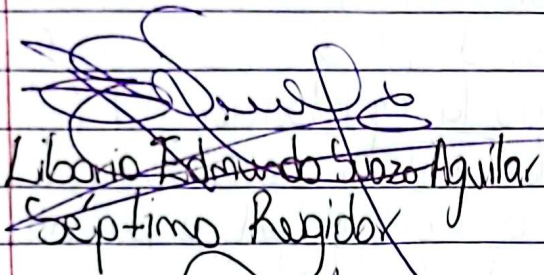 Liborio Edmundo Suazo Aguilar
Séptimo Regidor